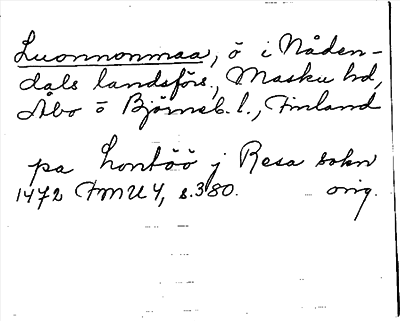 Luonnonmaa, ö i Nåden-
dals landsförs., Masku hd,
Åbo o Björneb. l., Finland
pa Lontöö j Resa sokn
1472 FMU 4, s. 380. orig.